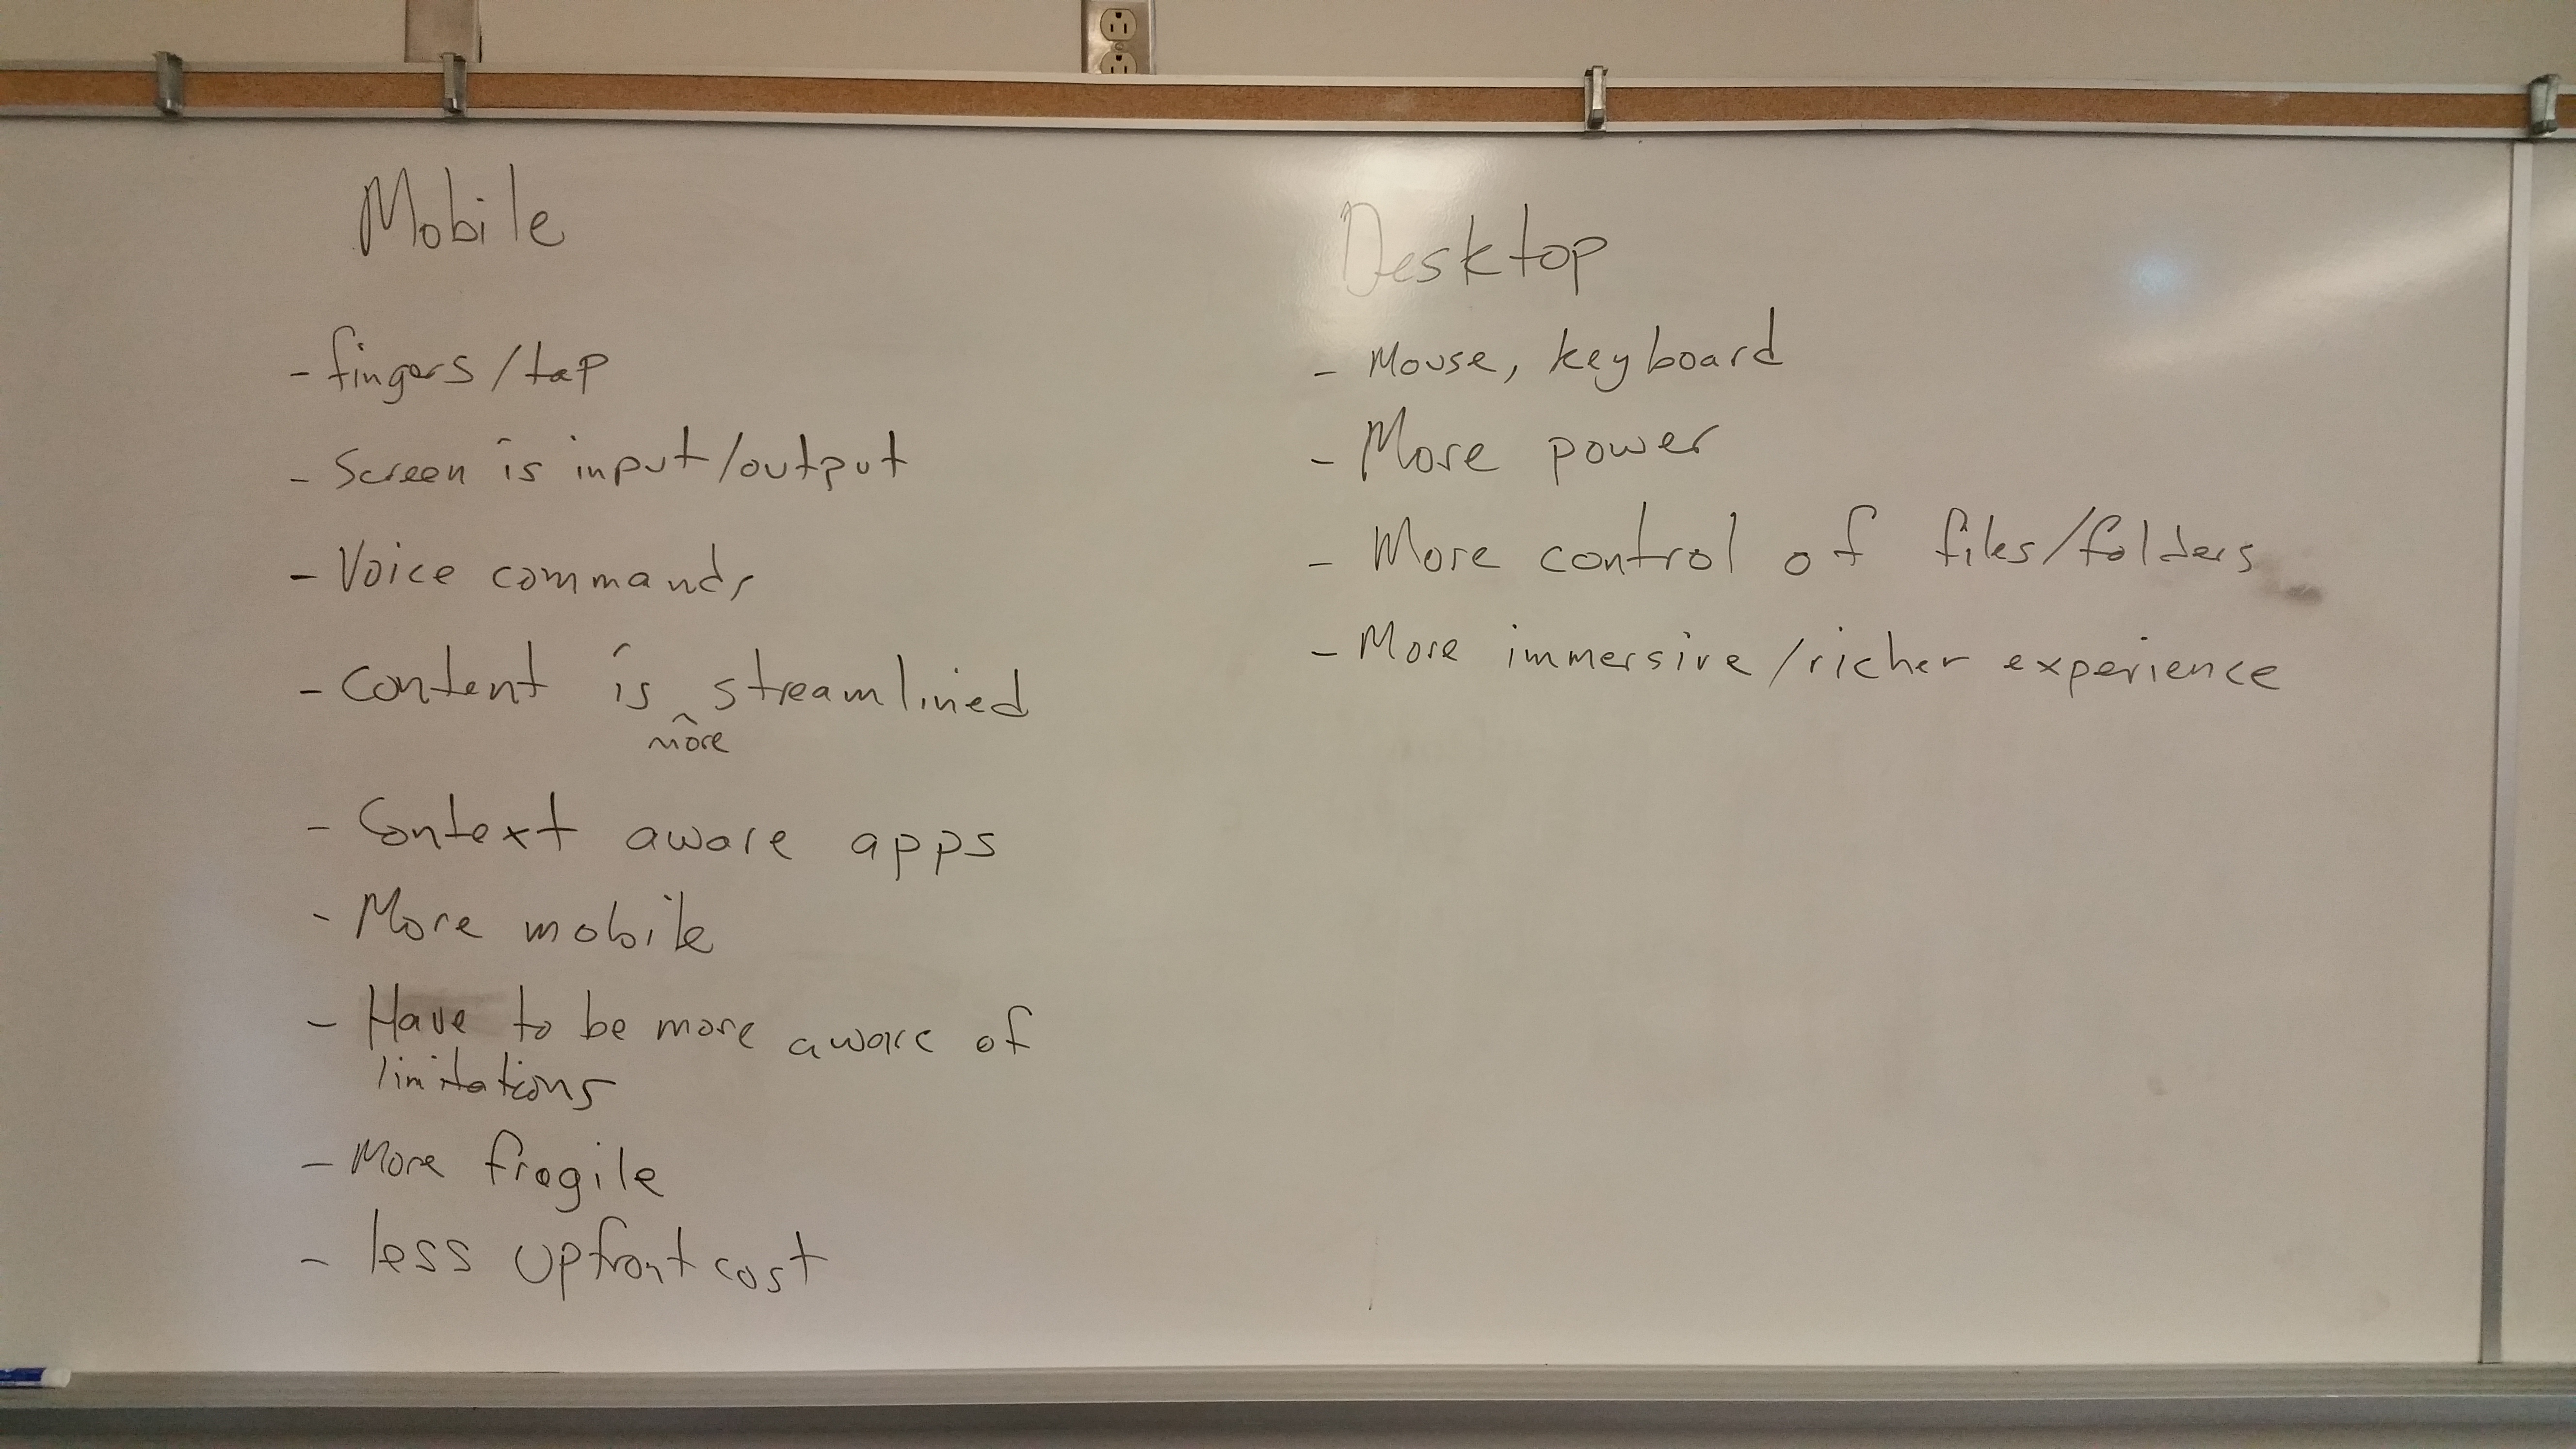 Mobile
- fingers/tap
- Screen is input/output
- Voice commands
- Content is ^ streamlined
more
- Context aware apps
- More mobile
- Have to be more aware of
limitations
- More fragile
- less upfront cost
Desktop
- Mouse, keyboard
- More power
- More control of files/folders
- More immersive/richer experience